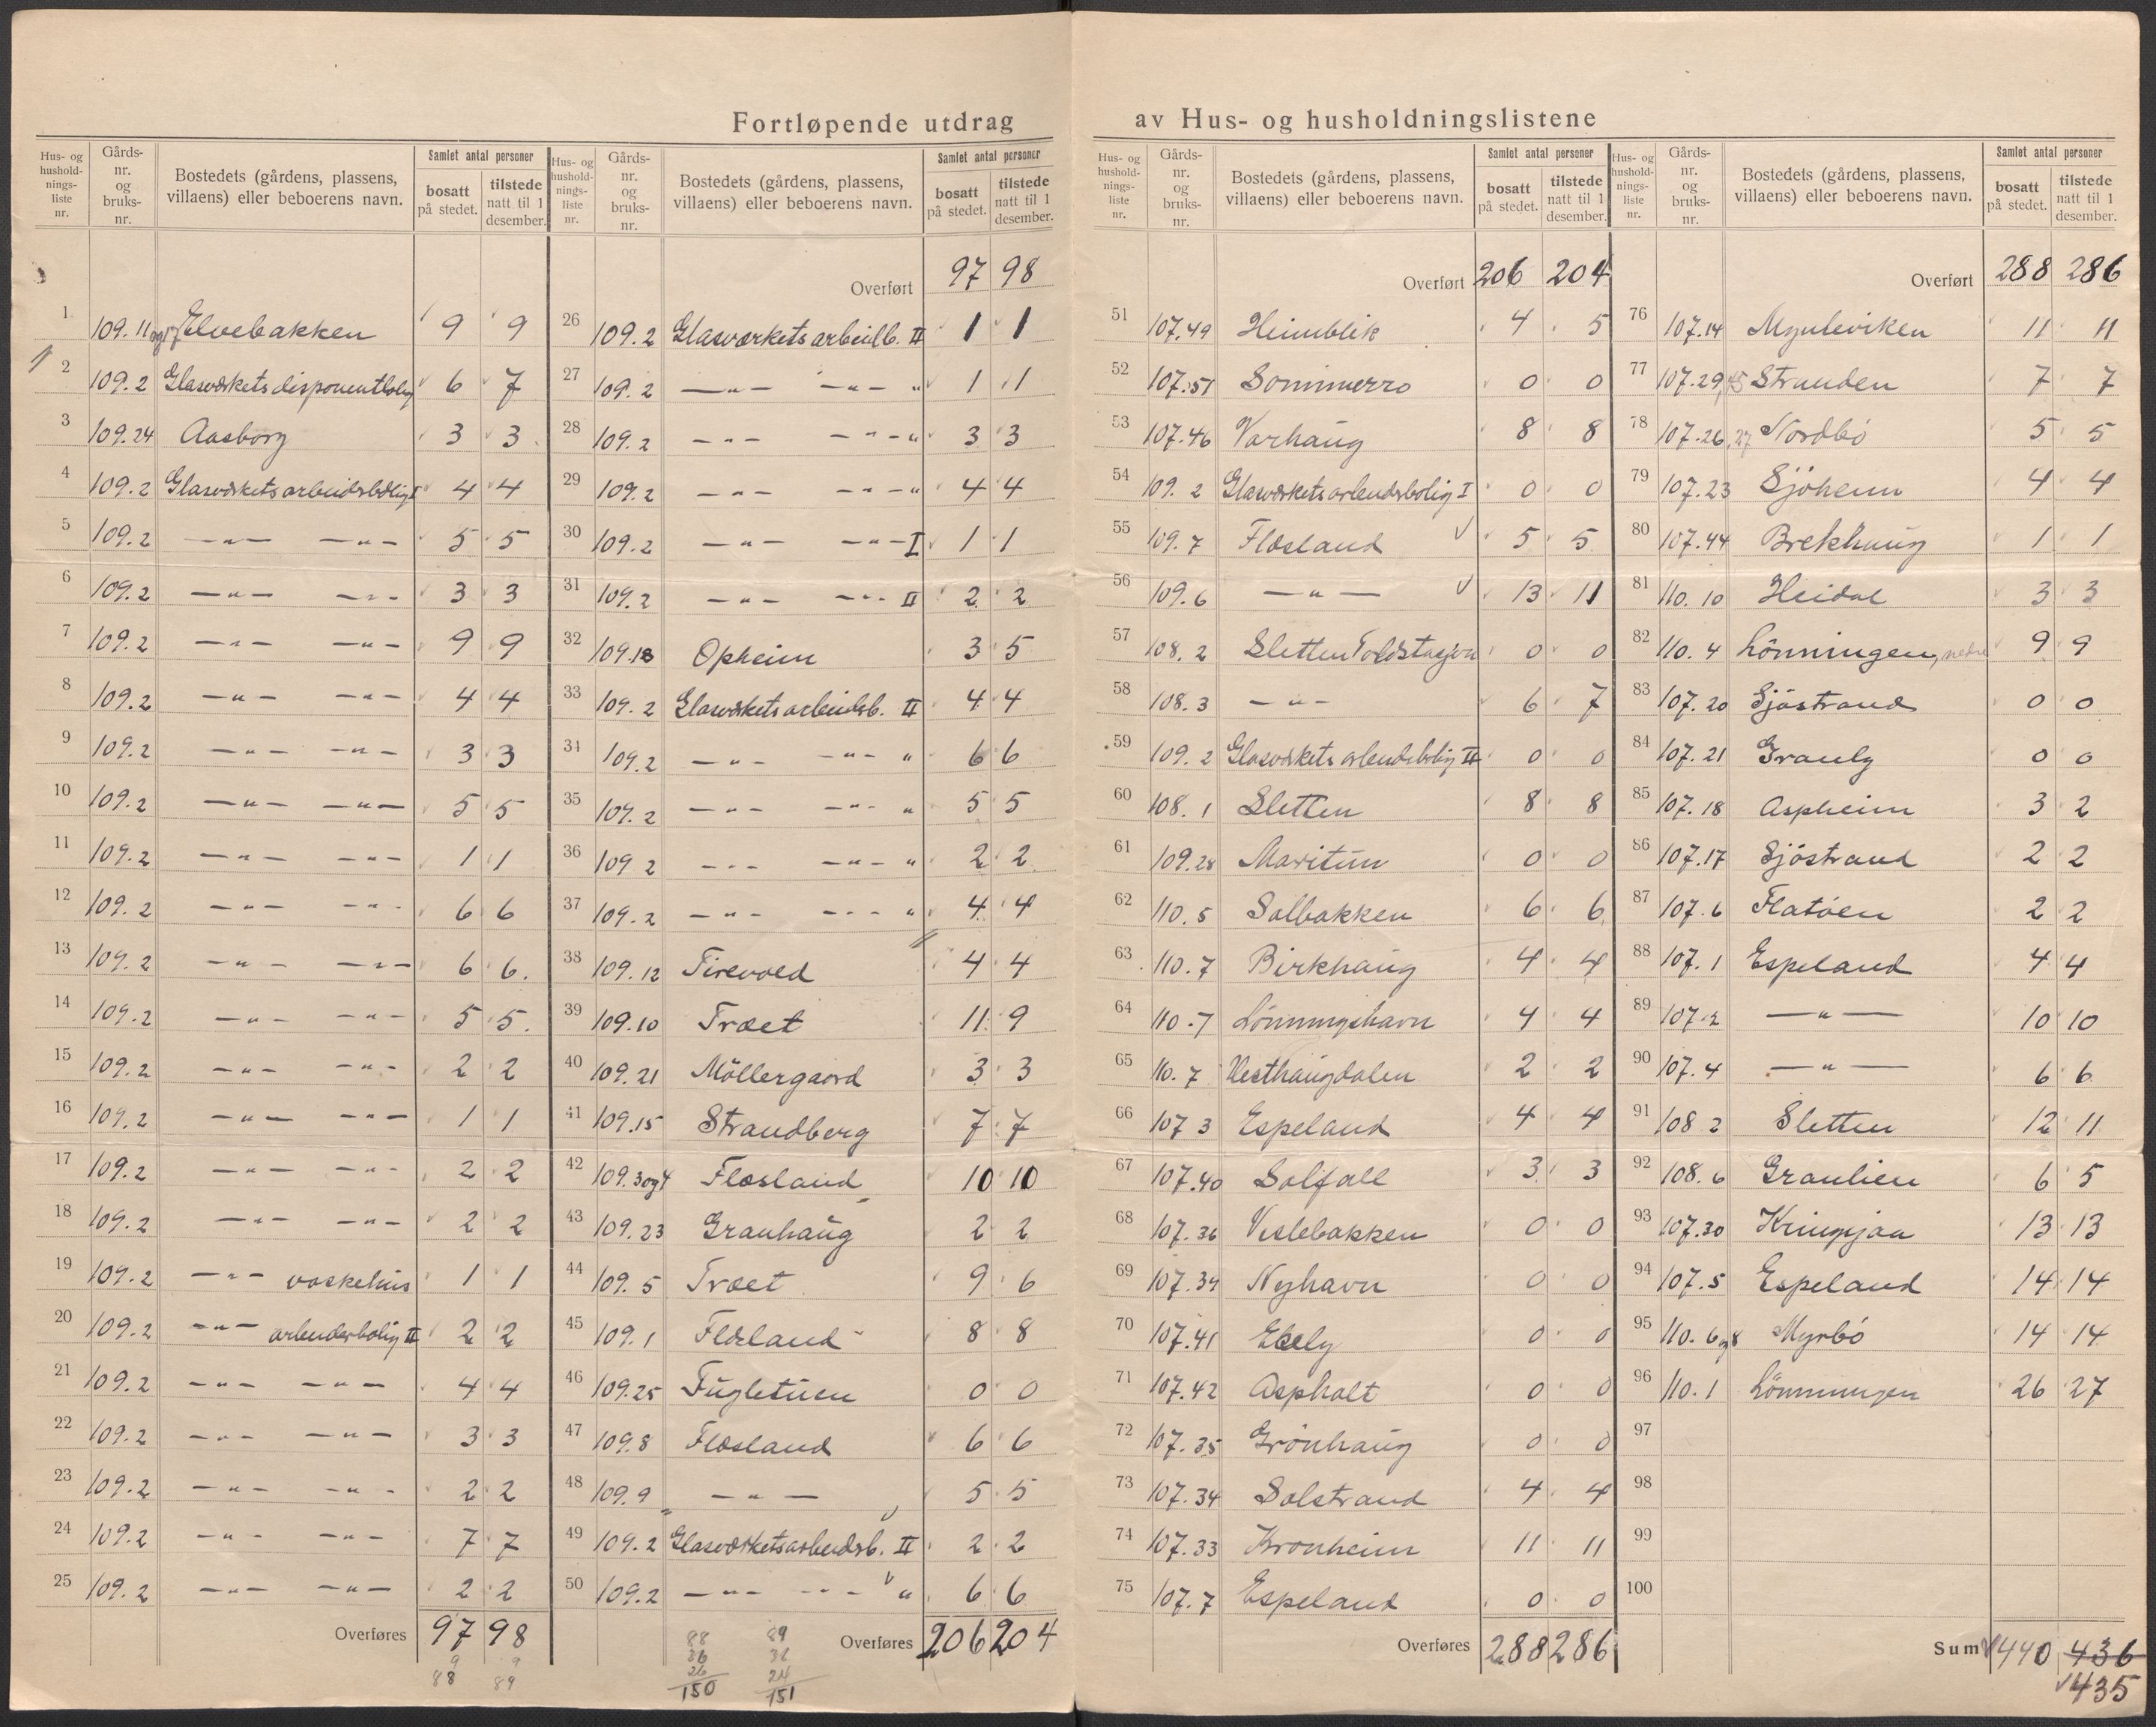 Fortløpende utdrag av Hus- og husholdningslistene
Hus- og hushold-nings-liste nr. Gårds-nr. og bruks-nr. Bostedets (gårdens, plassens, villaens) eller beboerens navn. Samlet antal personer bosatt på stedet. tilstede natt til 1 desember.
1 109.11 og 17 Elvebakken 9 9
2 109.2 Glasværkets disponentbolig 6 7
3 109.24 Aasborg 3 3
4 109.2 Glasværkets arbeidsbolig I 4 4
5 109.2 —"— —"— 5 5
6 109.2 —"— —"— 3 3
7 109.2 —"— —"— 9 9
8 109.2 —"— —"— 4 4
9 109.2 —"— —"— 3 3
10 109.2 —"— —"— 5 5
11 109.2 —"— —"— 1 1
12 109.2 —"— —"— 6 6
13 109.2 —"— —"— 6 6.
14 109.2 —"— —"— 5 5.
15 109.2 —"— —"— 2 2
16 109.2 —"— —"— 1 1
17 109.2 —"— —"— 2 2
18 109.2 —"— —"— 2 2
19 109.2 —"— vaskehus 1 1
20 109.2 —"— arbeiderbolig II 2 2
21 109.2 —"— —"— 4 4
22 109.2 —"— —"— 3 3
23 109.2 —"— —"— 2 2
24 109.2 —"— —"— 7 7
25 109.2 —"— —"— 2 2
Overføres 97 98
9 9
88 89
Hus- og hushold-nings-liste nr. Gårds-nr. og bruks-nr. Bostedets (gårdens, plassens, villaens) eller beboerens navn. Samlet antal personer bosatt på stedet. tilstede natt til 1 desember.
Overført 97 98
26 109.2 Glasværkets arbeidb. II 1 1
27 109.2 —"— —"— " 1 1
28 109.2 —"— —"— " 3 3
29 109.2 —"— —"— " 4 4
30 109.2 —"— —"— I 1 1
31 109.2 —"— —"— II 2 2
32 109.18 Opheim 3 5
33 109.2 Glasværkets arbeidsb. II 4 4
34 109.2 —"— —"— " 6 6
35 109.2 —"— —"— " 5 5
36 109 2 —"— —"— " 2 2
37 109.2 —"— —"— " 4 4
38 109.12 Tirevold 4 4
39 109.10 Træet 11 9
40 109.21 Möllergaard 3 3
41 109.15 Strandberg 7 7
42 109.3og4 Flæsland 10 10
43 109.23 Granhaug 2 2
44 109.5 Træet 9 6
45 109.1 Flæsland 8 8
46 109.25 Fugletuen 0 0
47 109.8 Flæsland 6 6
48 109.9 —"— 5 5
49 109.2 Glasværkets arbeidsb. II 2 2
50 109.2 —"— —"— " 6 6
Overføres 206 204
88 89
36 36
26 24
150 151
Hus- og hushold-nings-liste nr. Gårds-nr. og bruks-nr. Bostedets (gårdens, plassens, villaens) eller beboerens navn. Samlet antal personer bosatt på stedet. tilstede natt til 1 desember.
Overført 206 204
51 107.49 Heimblik 4 5
52 107.51 Sommerro 0 0
53 107.46 Varhaug 8 8
54 109.2 Glasværkets arbeidsbolig I 0 0
55 109.7 Flæsland 5 5
56 109.6 —"— 13 11
57 108.2 Sletten Toldstasjon 0 0
58 108.3 —"— 6 7
59 109.2 Glasværkets arbeidsbolig II 0 0
60 108.1 Sletten 8 8
61 109.28 Maritim 0 0
62 110.5 Solbakken 6 6
63 110.7 Birkhaug 4 4
64 110.7 Lönningshavn 4 4
65 110.7 Vesthaugdalen 2 2
66 107 3 Espeland 4 4
67 107.40 Solfall 3 3
68 107.36 Veslebakken 0 0
69 107.39 Nyhavn 0 0
70 107.41 0 0
71 107.42 Aspholt 0 0
72 107.35 Grönhaug 0 0
73 107.34 Solstrand 4 4
74 107.33 Kronheim 11 11
75 107.7 Espeland 0 0
Overføres 288 286
Hus- og hushold-nings-liste nr. Gårds-nr. og bruks-nr. Bostedets (gårdens, plassens, villaens) eller beboerens navn. Samlet antal personer bosatt på stedet. tilstede natt til 1 desember.
Overført 288 286
76 107.14 Mynteviken 11 11
77 107.29,45 Stranden 7 7
78 107.26,27 Nordbö 5 5
79 107.23 Sjöheim 4 4
80 107.44 Brekhaug 1 1
81 110.10 Heidal 3 3
82 110.4 Lönningen, nedre 9 9
83 107.20 Sjöstrand 0 0
84 107.21 Granly 0 0
85 107.18 Aspheim 3 2
86 107.17 Sjöstrand 2 2
87 107.6 Flatöen 2 2
88 107.1 Espeland 4 4
89 107.2 —"— 10 10
90 107.4 —"— 6 6
91 108 2 Sletten 12 11
92 108.6 Granlien 6 5
93 107.30 Kringsjaa 13 13
94 107.5 Espeland 14 14
95 110.6og8 Myrbö 14 14
96 110.1 Lönningen 26 27
97
98
99
100
Sum 440 436
435